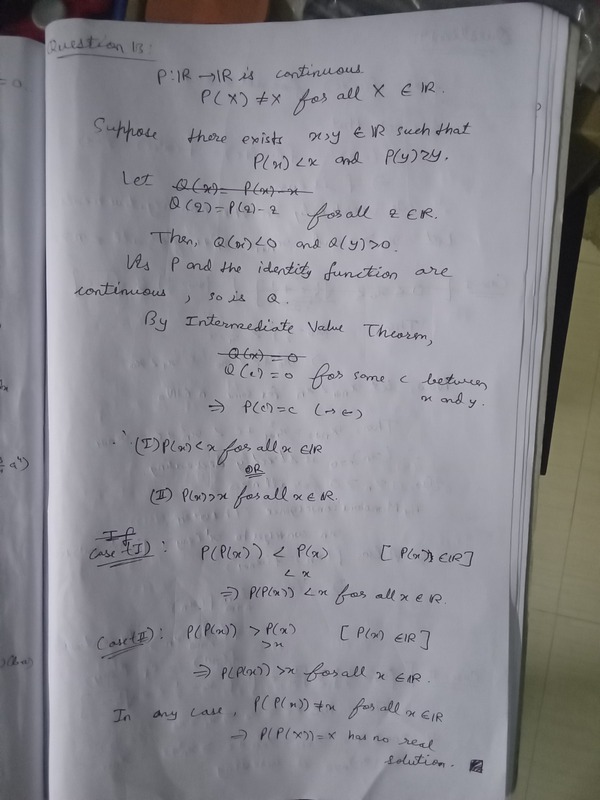 Question 13:
P:ℝ→ℝ is continuous.
P(X) ≠ X for all X ∈ ℝ.
Suppose there exists x, y ∈ ℝ such that
P(x) < x and P(y) > y.
Let Q(x) = P(x) - x
Q(z) = P(z) - z for all z ∈ ℝ.
Then, Q(x) < 0 and Q(y) > 0.
As P and the identity function are
continuous, so is Q.
By Intermediate Value Theorem,
Q(x) = 0
Q(c) = 0 for some c between
x and y.
⇒ P(c) = c (→←)
∴ (I) P(x) < x for all x ∈ ℝ
OR
(II) P(x) > x for all x ∈ ℝ.
If
Case (I): P(P(x)) < P(x) [P(x) ∈ ℝ]
< x
⇒ P(P(x)) < x for all x ∈ ℝ.
Case (II): P(P(x)) > P(x) [P(x) ∈ ℝ]
> x
⇒ P(P(x)) > x for all x ∈ ℝ.
In any case, P(P(x)) ≠ x for all x ∈ ℝ
⇒ P(P(X)) = X has no real
solution.
= 0
a⁴)